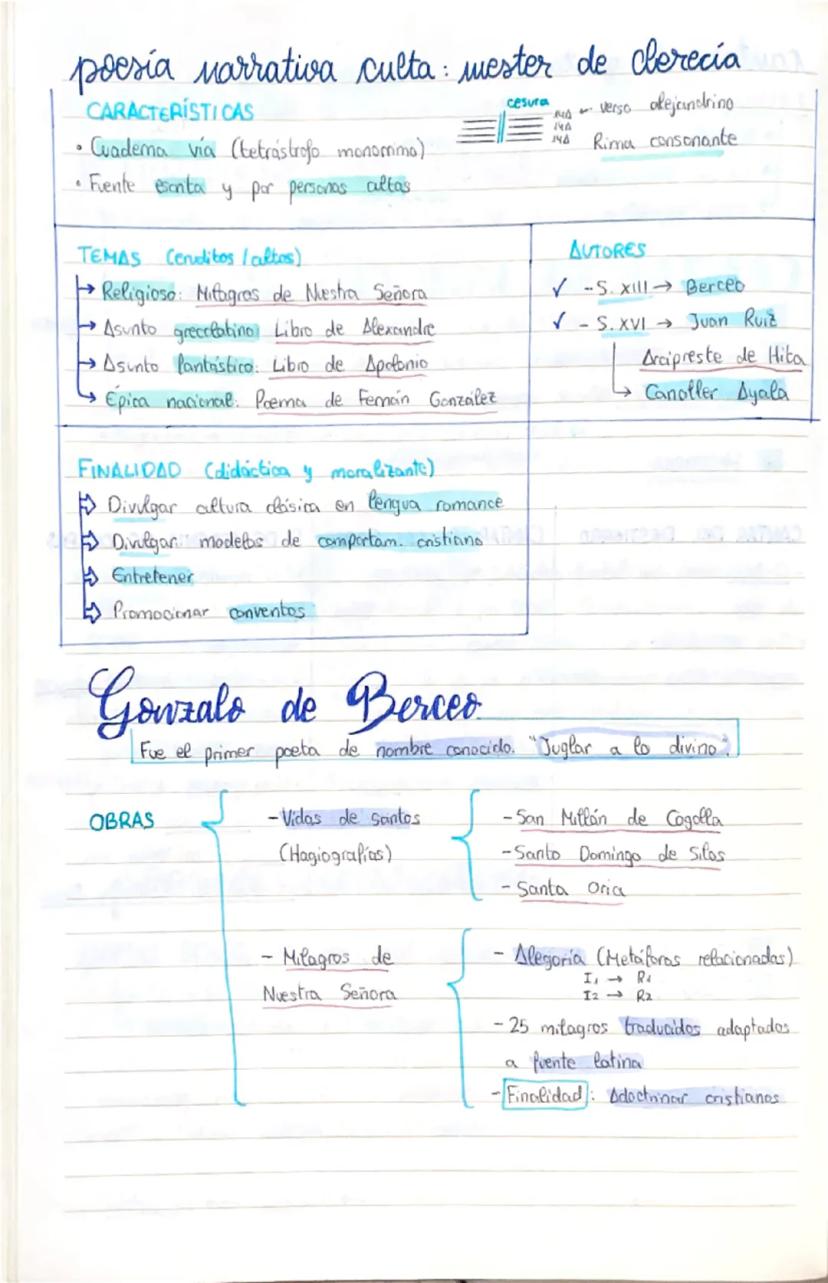 poesía narrativa culta: mester de clerecía
CARACTERÍSTICAS
• Cuaderna vía (tetrástrofo monorrimo)
• Fuente escrita y por personas cultas
cesura
14A ← verso alejandrino
14A
14A
Rima consonante
TEMAS (eruditos / cultos)
→ Religioso: Milagros de Nuestra Señora
→ Asunto grecolatino: Libro de Alexandre
→ Asunto fantástico: Libro de Apolonio
→ Épica nacional: Poema de Fernán González
AUTORES
✓ - S. XIII → Berceo
✓ - S. XVI → Juan Ruiz
Arcipreste de Hita
→ Canciller Ayala
FINALIDAD (didáctica y moralizante)
⇒ Divulgar cultura clásica en lengua romance
⇒ Divulgar modelos de comportam. cristiano
⇒ Entretener
⇒ Promocionar conventos
Gonzalo de Berceo
Fue el primer poeta de nombre conocido. "Juglar a lo divino".
OBRAS
- Vidas de santos
(Hagiografías)
- San Millán de Cogolla
- Santo Domingo de Silos
- Santa Oria
- Milagros de
Nuestra Señora
- Alegoría (Metáforas relacionadas)
I1 → R1
I2 → R2
- 25 milagros traducidos adaptados
a fuente latina
- Finalidad: Adoctrinar cristianos